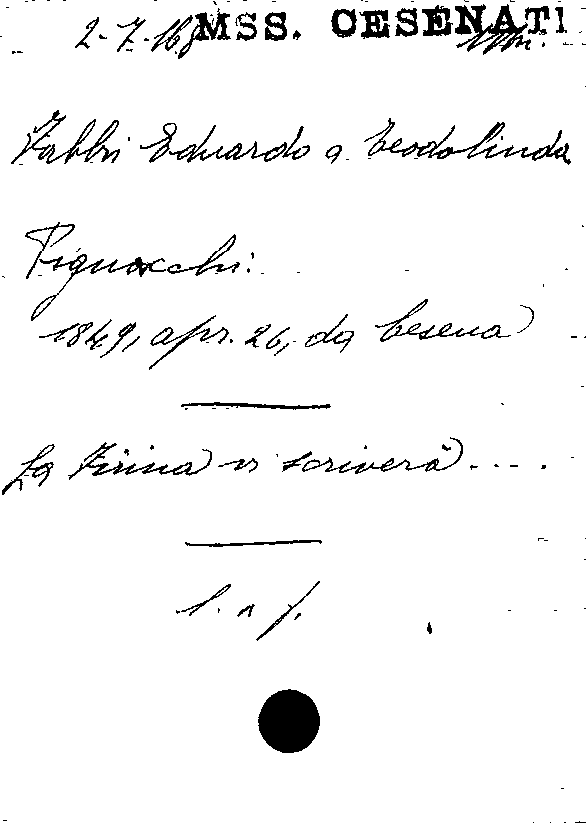 MSS. CESENATI
2-7-168
Fabbri Eduardo a Teodolinda
Pignocchi.
1849, apr. 26, da Cesena
La Firina vi scriverà ....
l. a f.